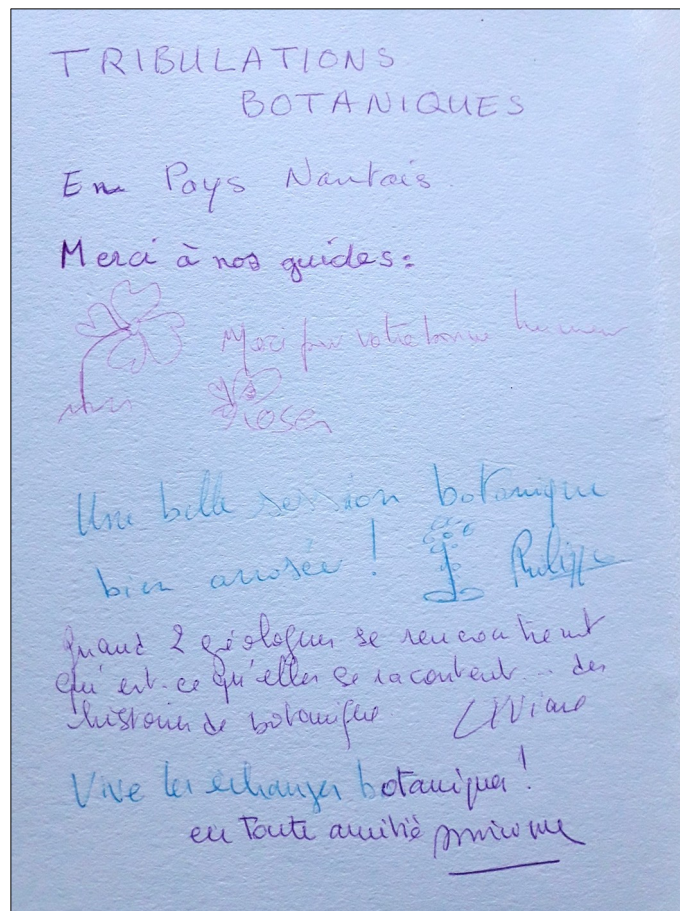 TRIBULATIONS
BOTANIQUES
En Pays Nantais.
Merci à nos guides:
Merci pour votre bonne humeur
Une belle session botanique
bien arrosée ! Philippe
Quand 2 géologues se rencontrent
qu'est-ce qu'elles se racontent... des
histoires de botanique Liliane
Vive les échanges botaniques !
en toute amitié